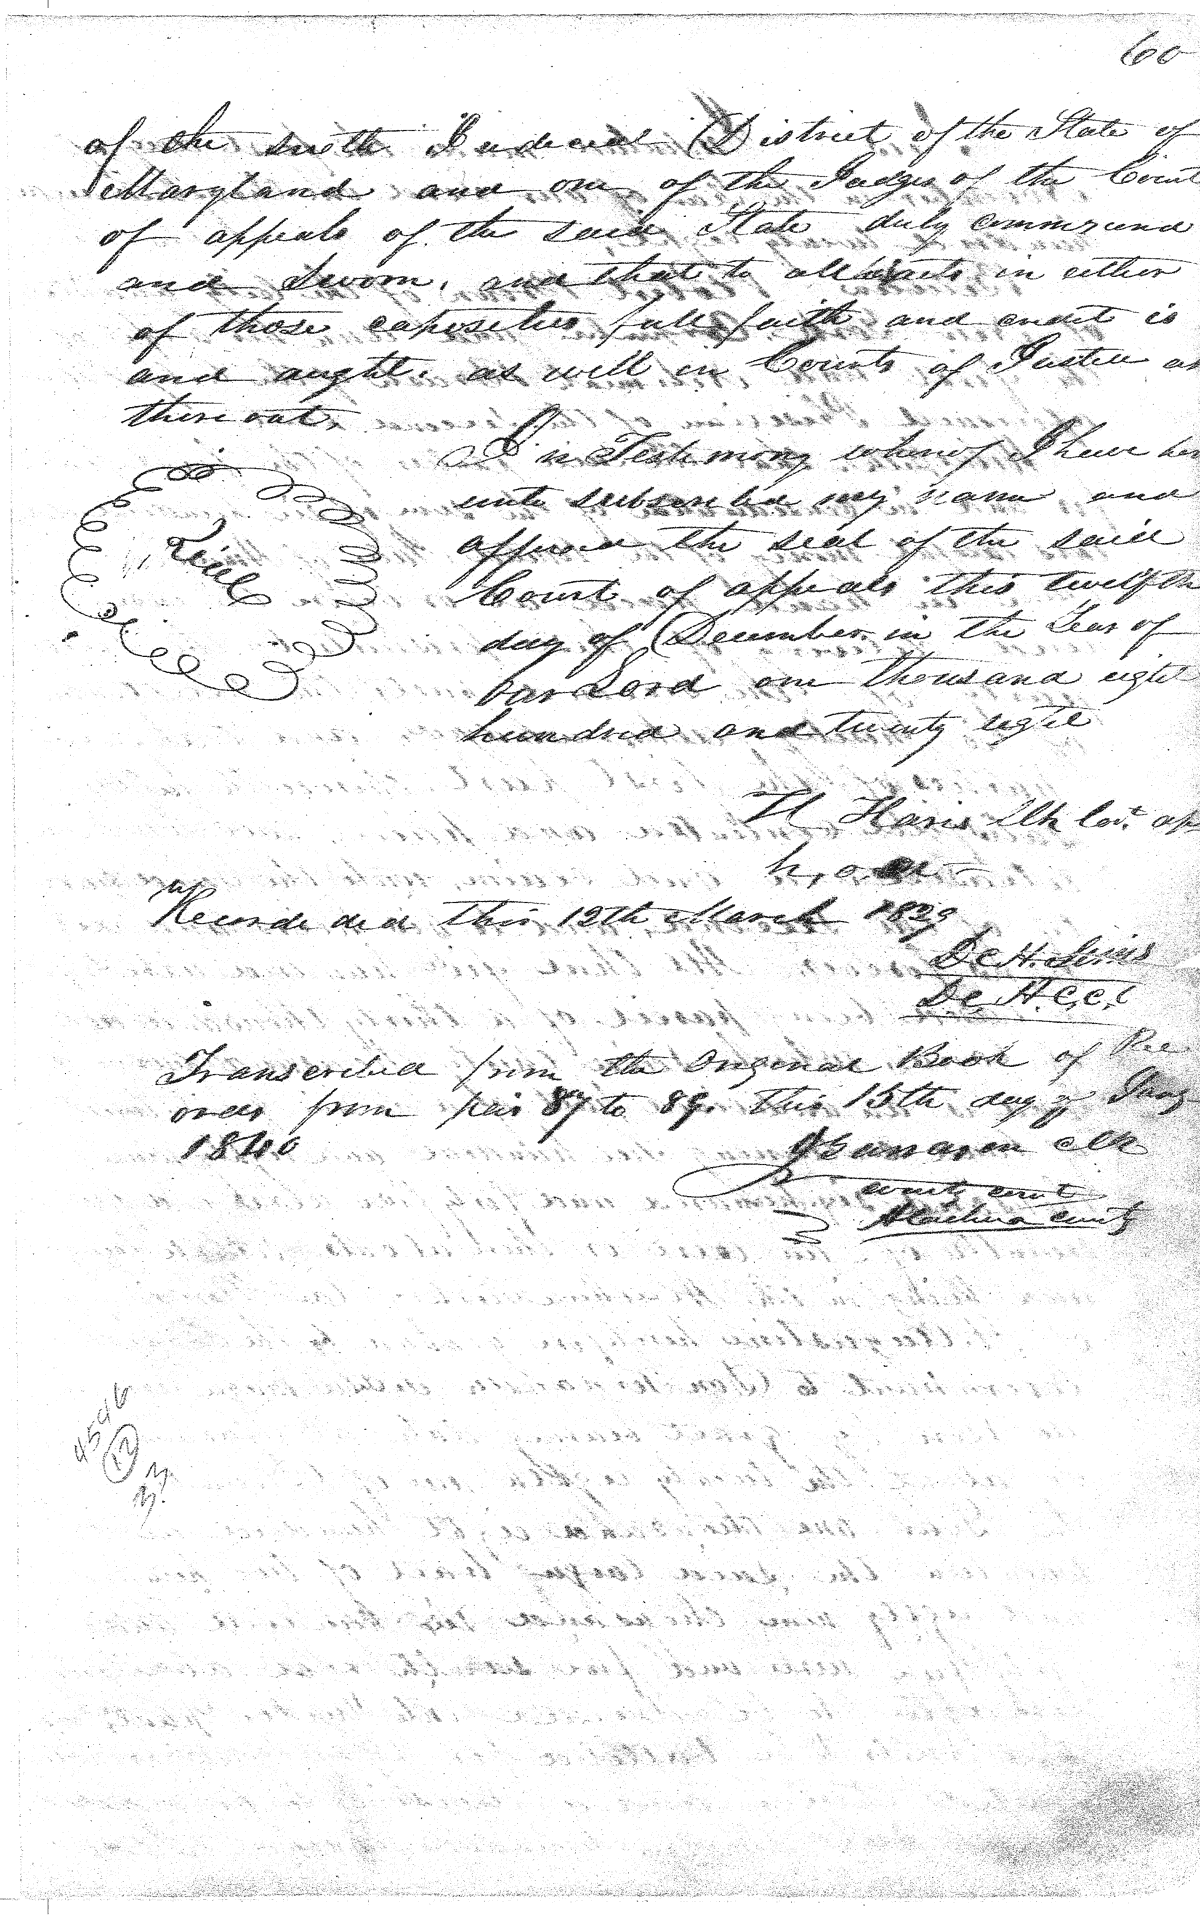 60
of the sixth Judecial District of the State of
Maryland and one of the Judges of the Court
of appeals of the said State duly
and Sworn, and that to all acts in either
of those capacities full faith and credit is
and aught. as well in Courts of Justice as
there out,
In Testimony whereof I have her
unto subscribed my name and
affixed the seal of the said
Court of appeals this twelfth
day of December in the Year of
our Lord one thousand eight
hundred and twenty eight
Seal
H Haris Clk Cort. ap
Recorde ded this 12th March 1829
De H. Sims
D.c. H. C.c.c
Transcribed from the Original Book of Rec
ords from pas 87 to 89. this 15th day of Jany
1840
clk
county court
Alachua county
4546
12
33